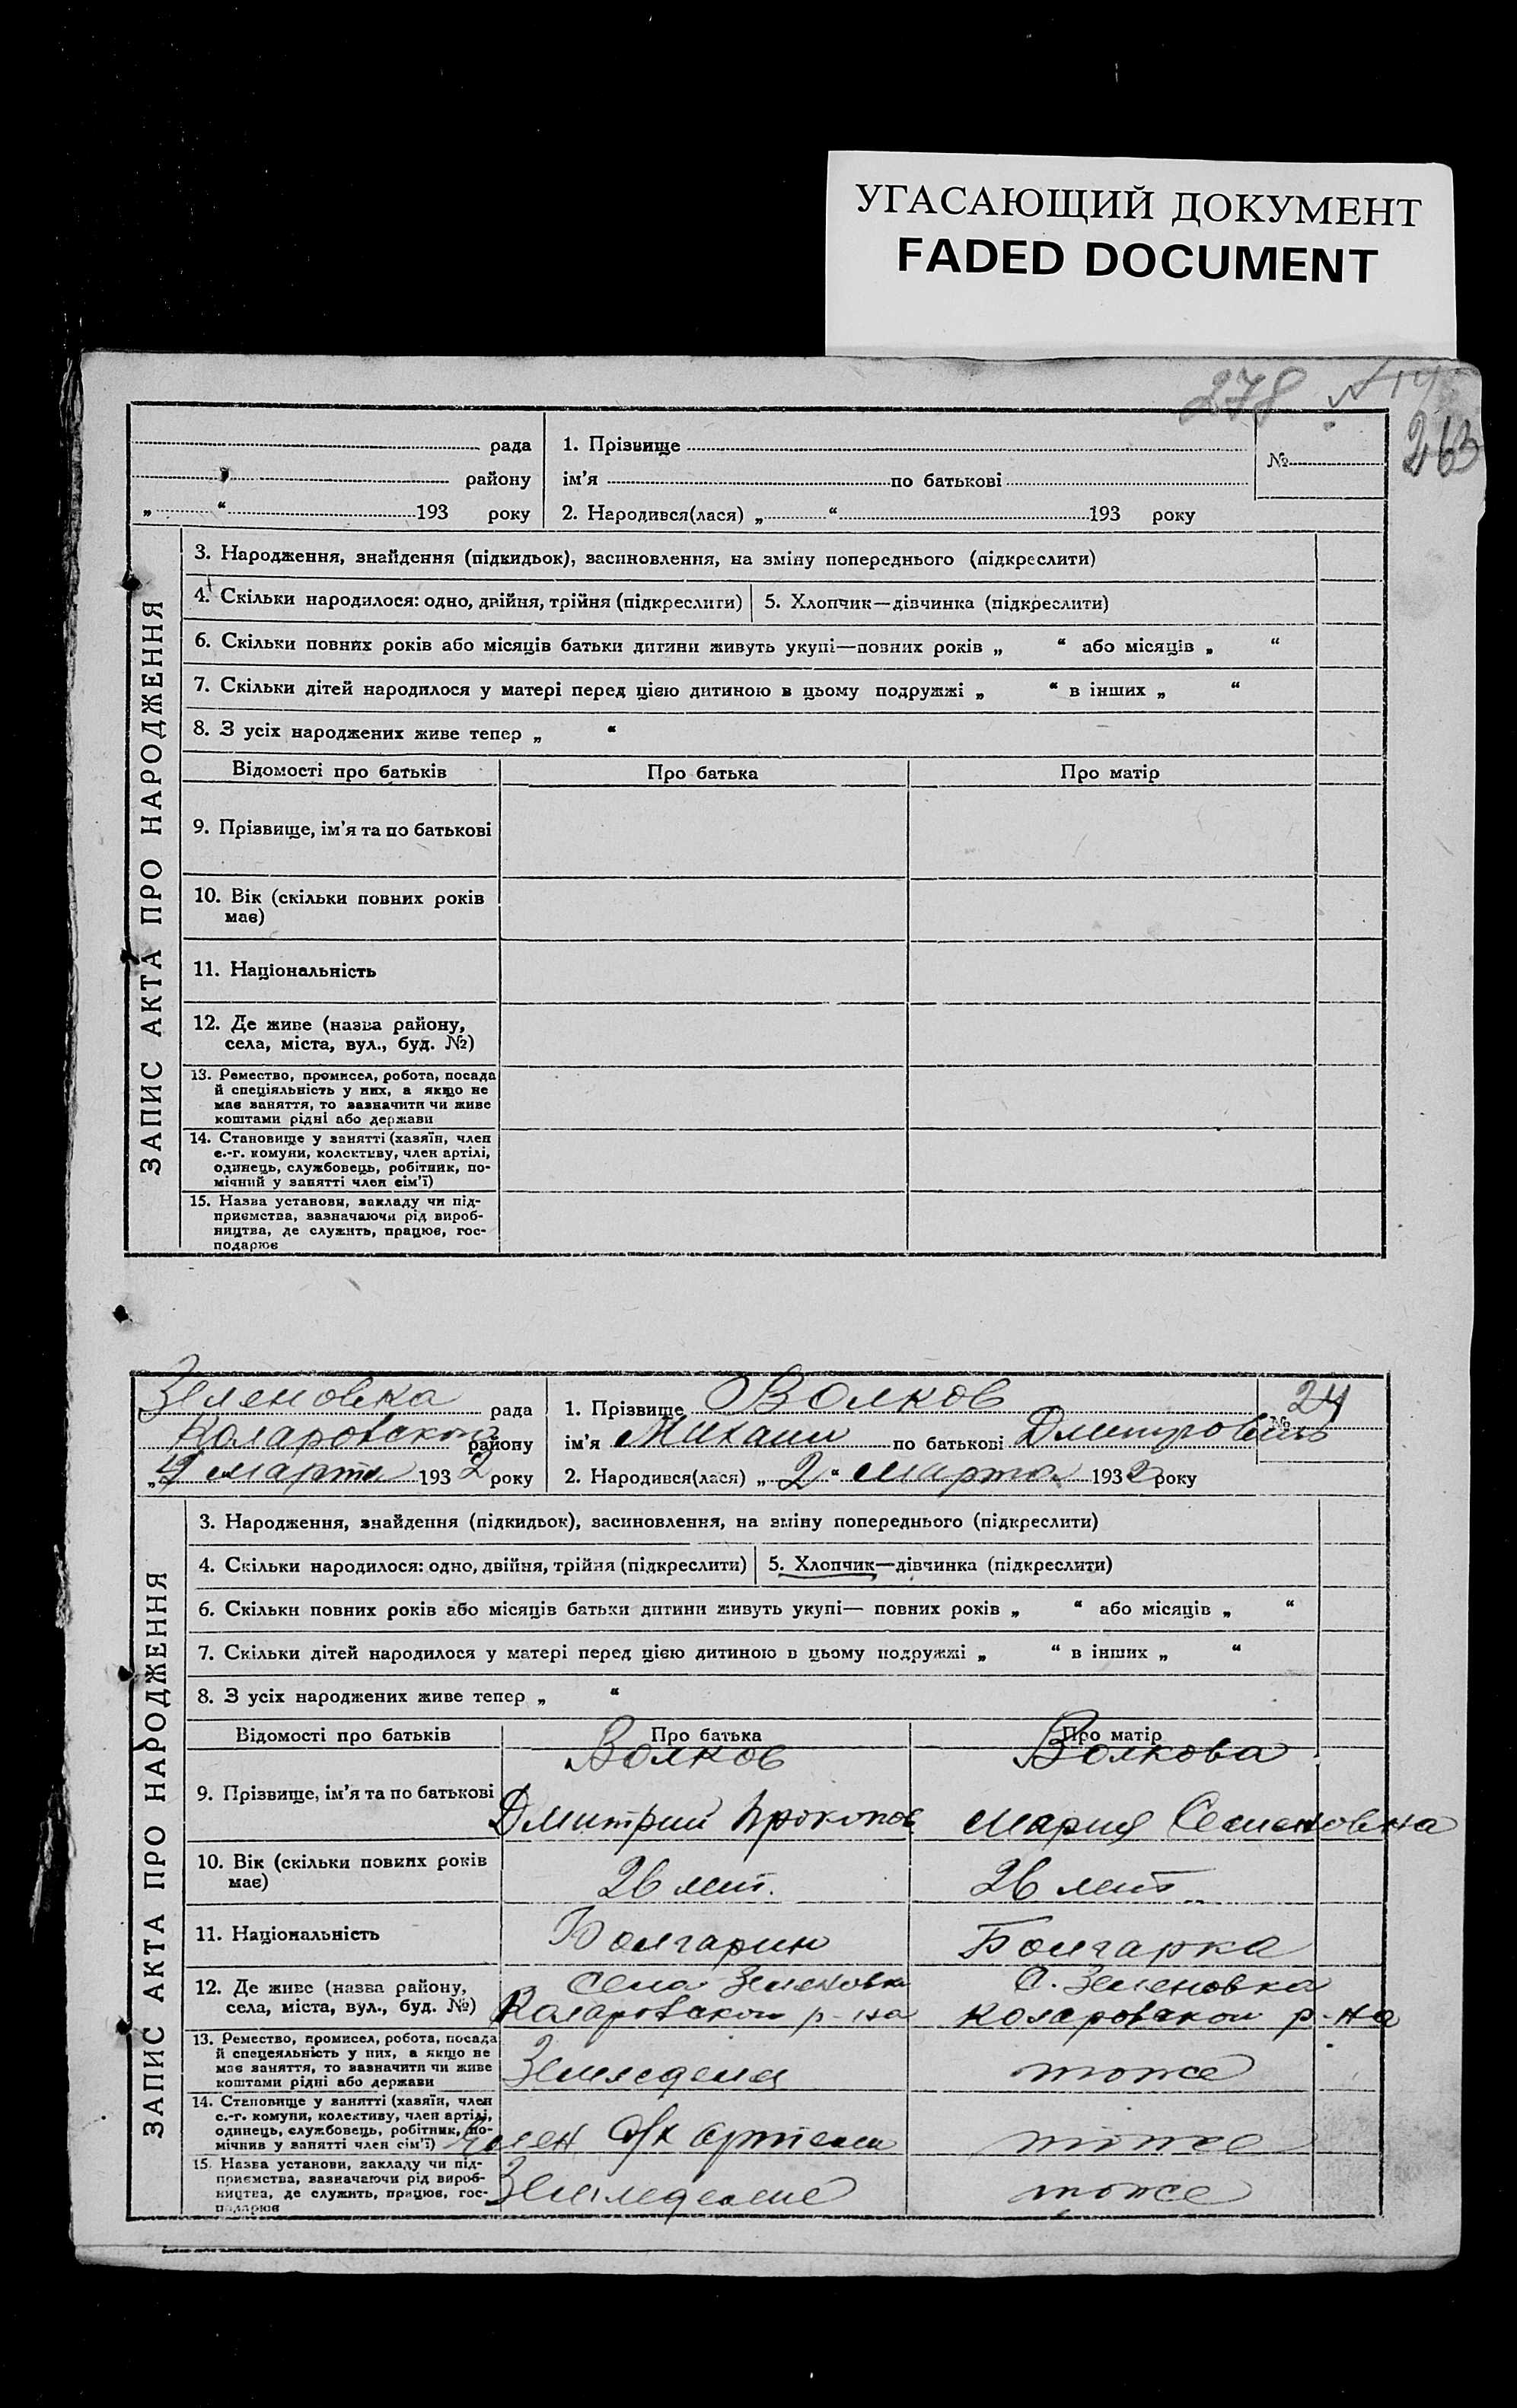 УГАСАЮЩИЙ ДОКУМЕНТ
FADED DOCUMENT
278 №14
263
рада
району
„ “ 193 року
1. Прізвище
ім'я по батькові
№
2. Народився(лася) „ “ 193 року
ЗАПИС АКТА ПРО НАРОДЖЕННЯ
3. Народження, знайдення (підкидьок), засиновлення, на зміну попереднього (підкреслити)
4. Скільки народилося: одно, двійня, трійня (підкреслити) 5. Хлопчик—дівчинка (підкреслити)
6. Скільки повних років або місяців батьки дитини живуть укупі—повних років „ “ або місяців „ “
7. Скільки дітей народилося у матері перед цією дитиною в цьому подружжі „ “ в інших „ “
8. З усіх народжених живе тепер „ “
Відомості про батьків Про батька Про матір
9. Прізвище, ім'я та по батькові
10. Вік (скільки повних років
має)
11. Національність
12. Де живе (назва району,
села, міста, вул., буд. №)
13. Ремество, промисел, робота, посада
й спеціяльність у них, а якщо не
має заняття, то зазначити чи живе
коштами рідні або держави
14. Становище у занятті (хазяїн, член
с.-г. комуни, колективу, член артілі,
одинець, службовець, робітник, по-
мічний у занятті член сім'ї)
15. Назва установи, закладу чи під-
приємства, зазначаючи рід вироб-
ництва, де служить, працює, гос-
подарює
Зеленовка рада
Коларовского району
марта 1932 року
1. Прізвище Волков
ім'я Михаил по батькові Дмитровичь
№ 24
2. Народився(лася) „ 2 “ марта 1932 року
ЗАПИС АКТА ПРО НАРОДЖЕННЯ
3. Народження, знайдення (підкидьок), засиновлення, на зміну попереднього (підкреслити)
4. Скільки народилося: одно, двійня, трійня (підкреслити) 5. Хлопчик—дівчинка (підкреслити)
6. Скільки повних років або місяців батьки дитини живуть укупі— повних років „ “ або місяців „ “
7. Скільки дітей народилося у матері перед цією дитиною в цьому подружжі „ “ в інших „ “
8. З усіх народжених живе тепер „ “
Відомості про батьків Про батька Про матір
Волков Волкова
9. Прізвище, ім'я та по батькові Дмитрий Прокопов Мария Семеновна
10. Вік (скільки повних років
має) 26 лет. 26 лет
11. Національність Болгарин Болгарка
12. Де живе (назва району, Села Зеленовка С. Зеленовка
села, міста, вул., буд. №) Коларовском р-на Коларовском р-на
13. Ремество, промисел, робота, посада
й спеціяльність у них, а якщо не
має заняття, то зазначити чи живе Земледелия тоже
коштами рідні або держави
14. Становище у занятті (хазяїн, член
с.-г. комуни, колективу, член артілі,
одинець, службовець, робітник, по-
мічнив у занятті член сім'ї) Член с/х артели тоже
15. Назва установи, закладу чи під-
приємства, зазначаючи рід вироб-
ництва, де служить, працює, гос- Земледелие тоже
подарює